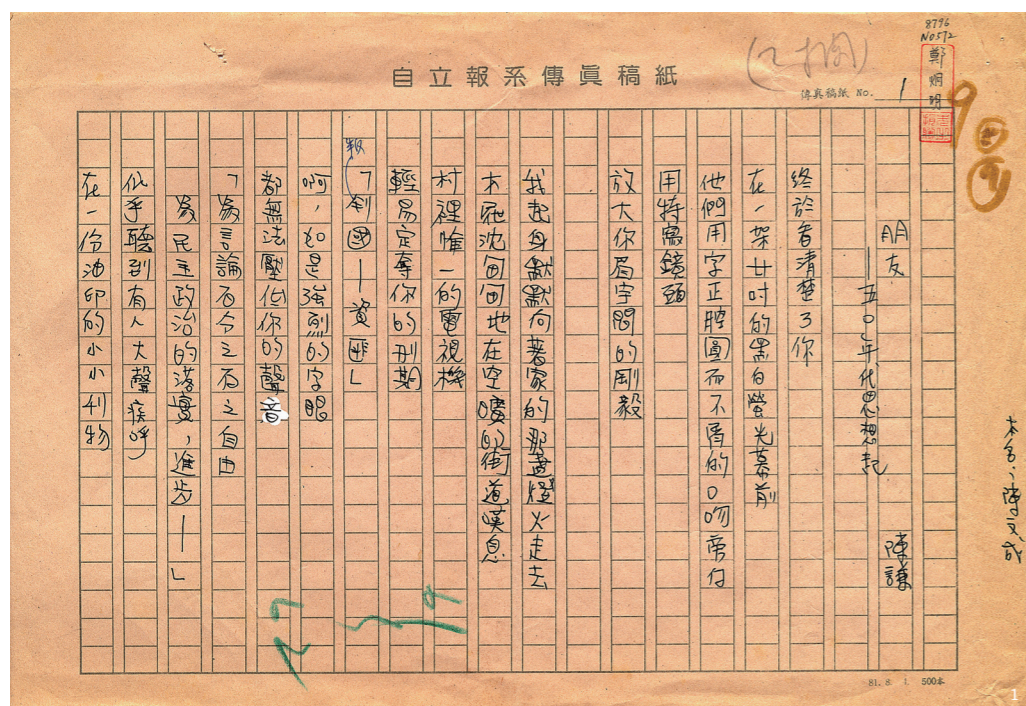 8796
NO572
(乙十八則)
自立報系傳眞稿紙
傳眞稿紙 No. 1
鄭烱明
朋友
—五○年代思想起
陳謙
終於看清楚了你
在一架廿吋的黑白螢光幕前
他們用字正腔圓而不屑的口吻宣佈
用特寫鏡頭
放大你眉宇間的剛毅
我起身默默向著家的那盞燈火走去
木屐沈甸甸地在空曠的街道嘆息
村裡惟一的電視機
輕易定奪你的刑期
「判國—資匪」
叛
啊,如是強烈的字眼
都無法壓低你的聲音
「為言論而令之而之自由
為民主政治的落實,進步——」
似乎聽到有人大聲疾呼
在一份油印的小小刊物
本名:陳文成
81. 8. 1. 500本
1